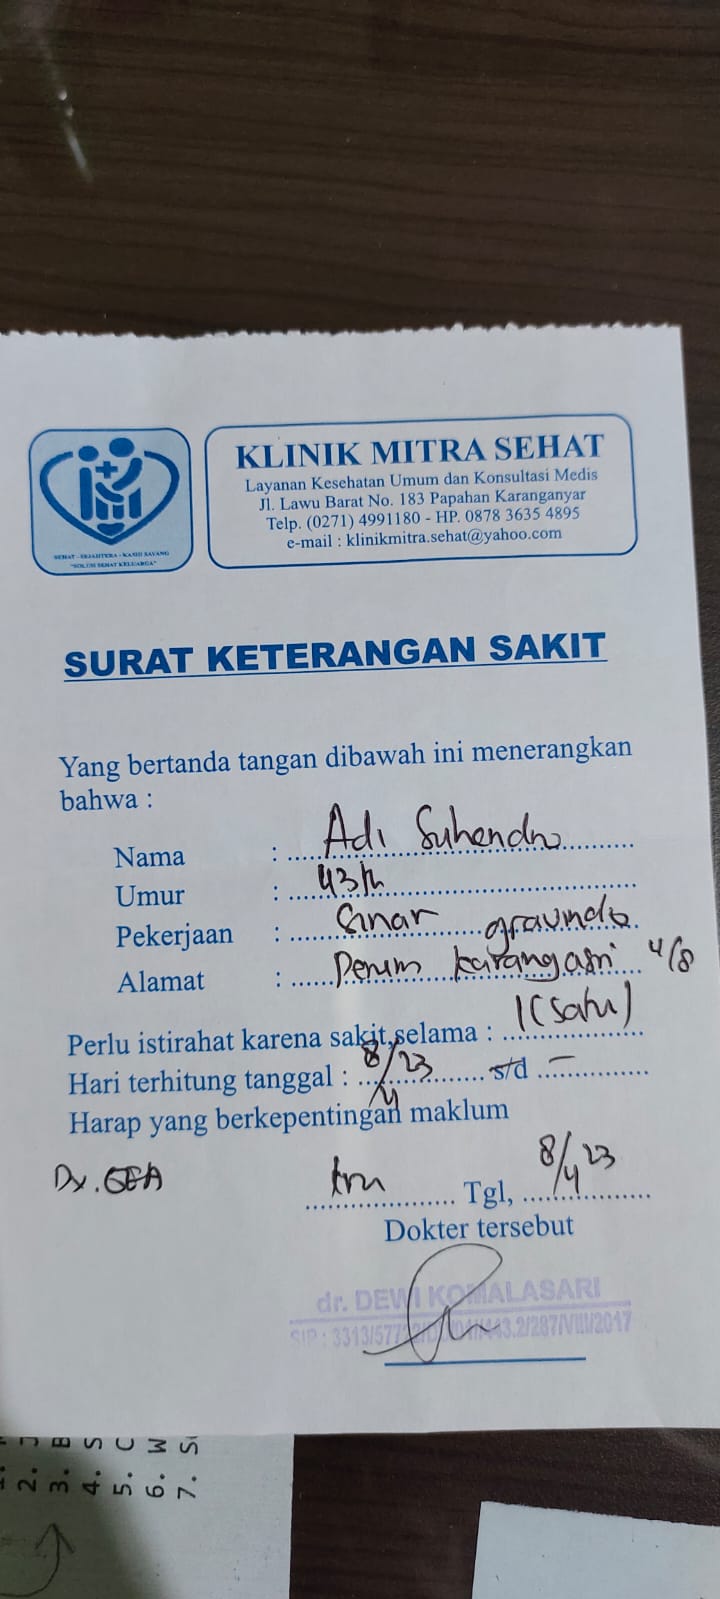 KLINIK MITRA SEHAT
Layanan Kesehatan Umum dan Konsultasi Medis
Jl. Lawu Barat No. 183 Papahan Karanganyar
Telp. (0271) 4991180 - HP. 0878 3635 4895
e-mail : klinikmitra.sehat@yahoo.com
SEHAT - SEJAHTERA - KASIH SAYANG
"SOLUSI SEHAT KELUARGA"
SURAT KETERANGAN SAKIT
Yang bertanda tangan dibawah ini menerangkan
bahwa :
Nama : Adi Suhendro
Umur : 43 th
Pekerjaan : Sinar gravindo
Alamat : Perum karangasri 4/8
Perlu istirahat karena sakit,selama : 1 (satu)
Hari terhitung tanggal : 8/4 23 s/d -
Harap yang berkepentingan maklum
Dx. GEA
Tgl, 8/4 23
Dokter tersebut
dr. DEWI KOMALASARI
SIP : 3313/577 443.2/287/VIII/2017
2.
3. B
4. S
5. C
6. W
7. S